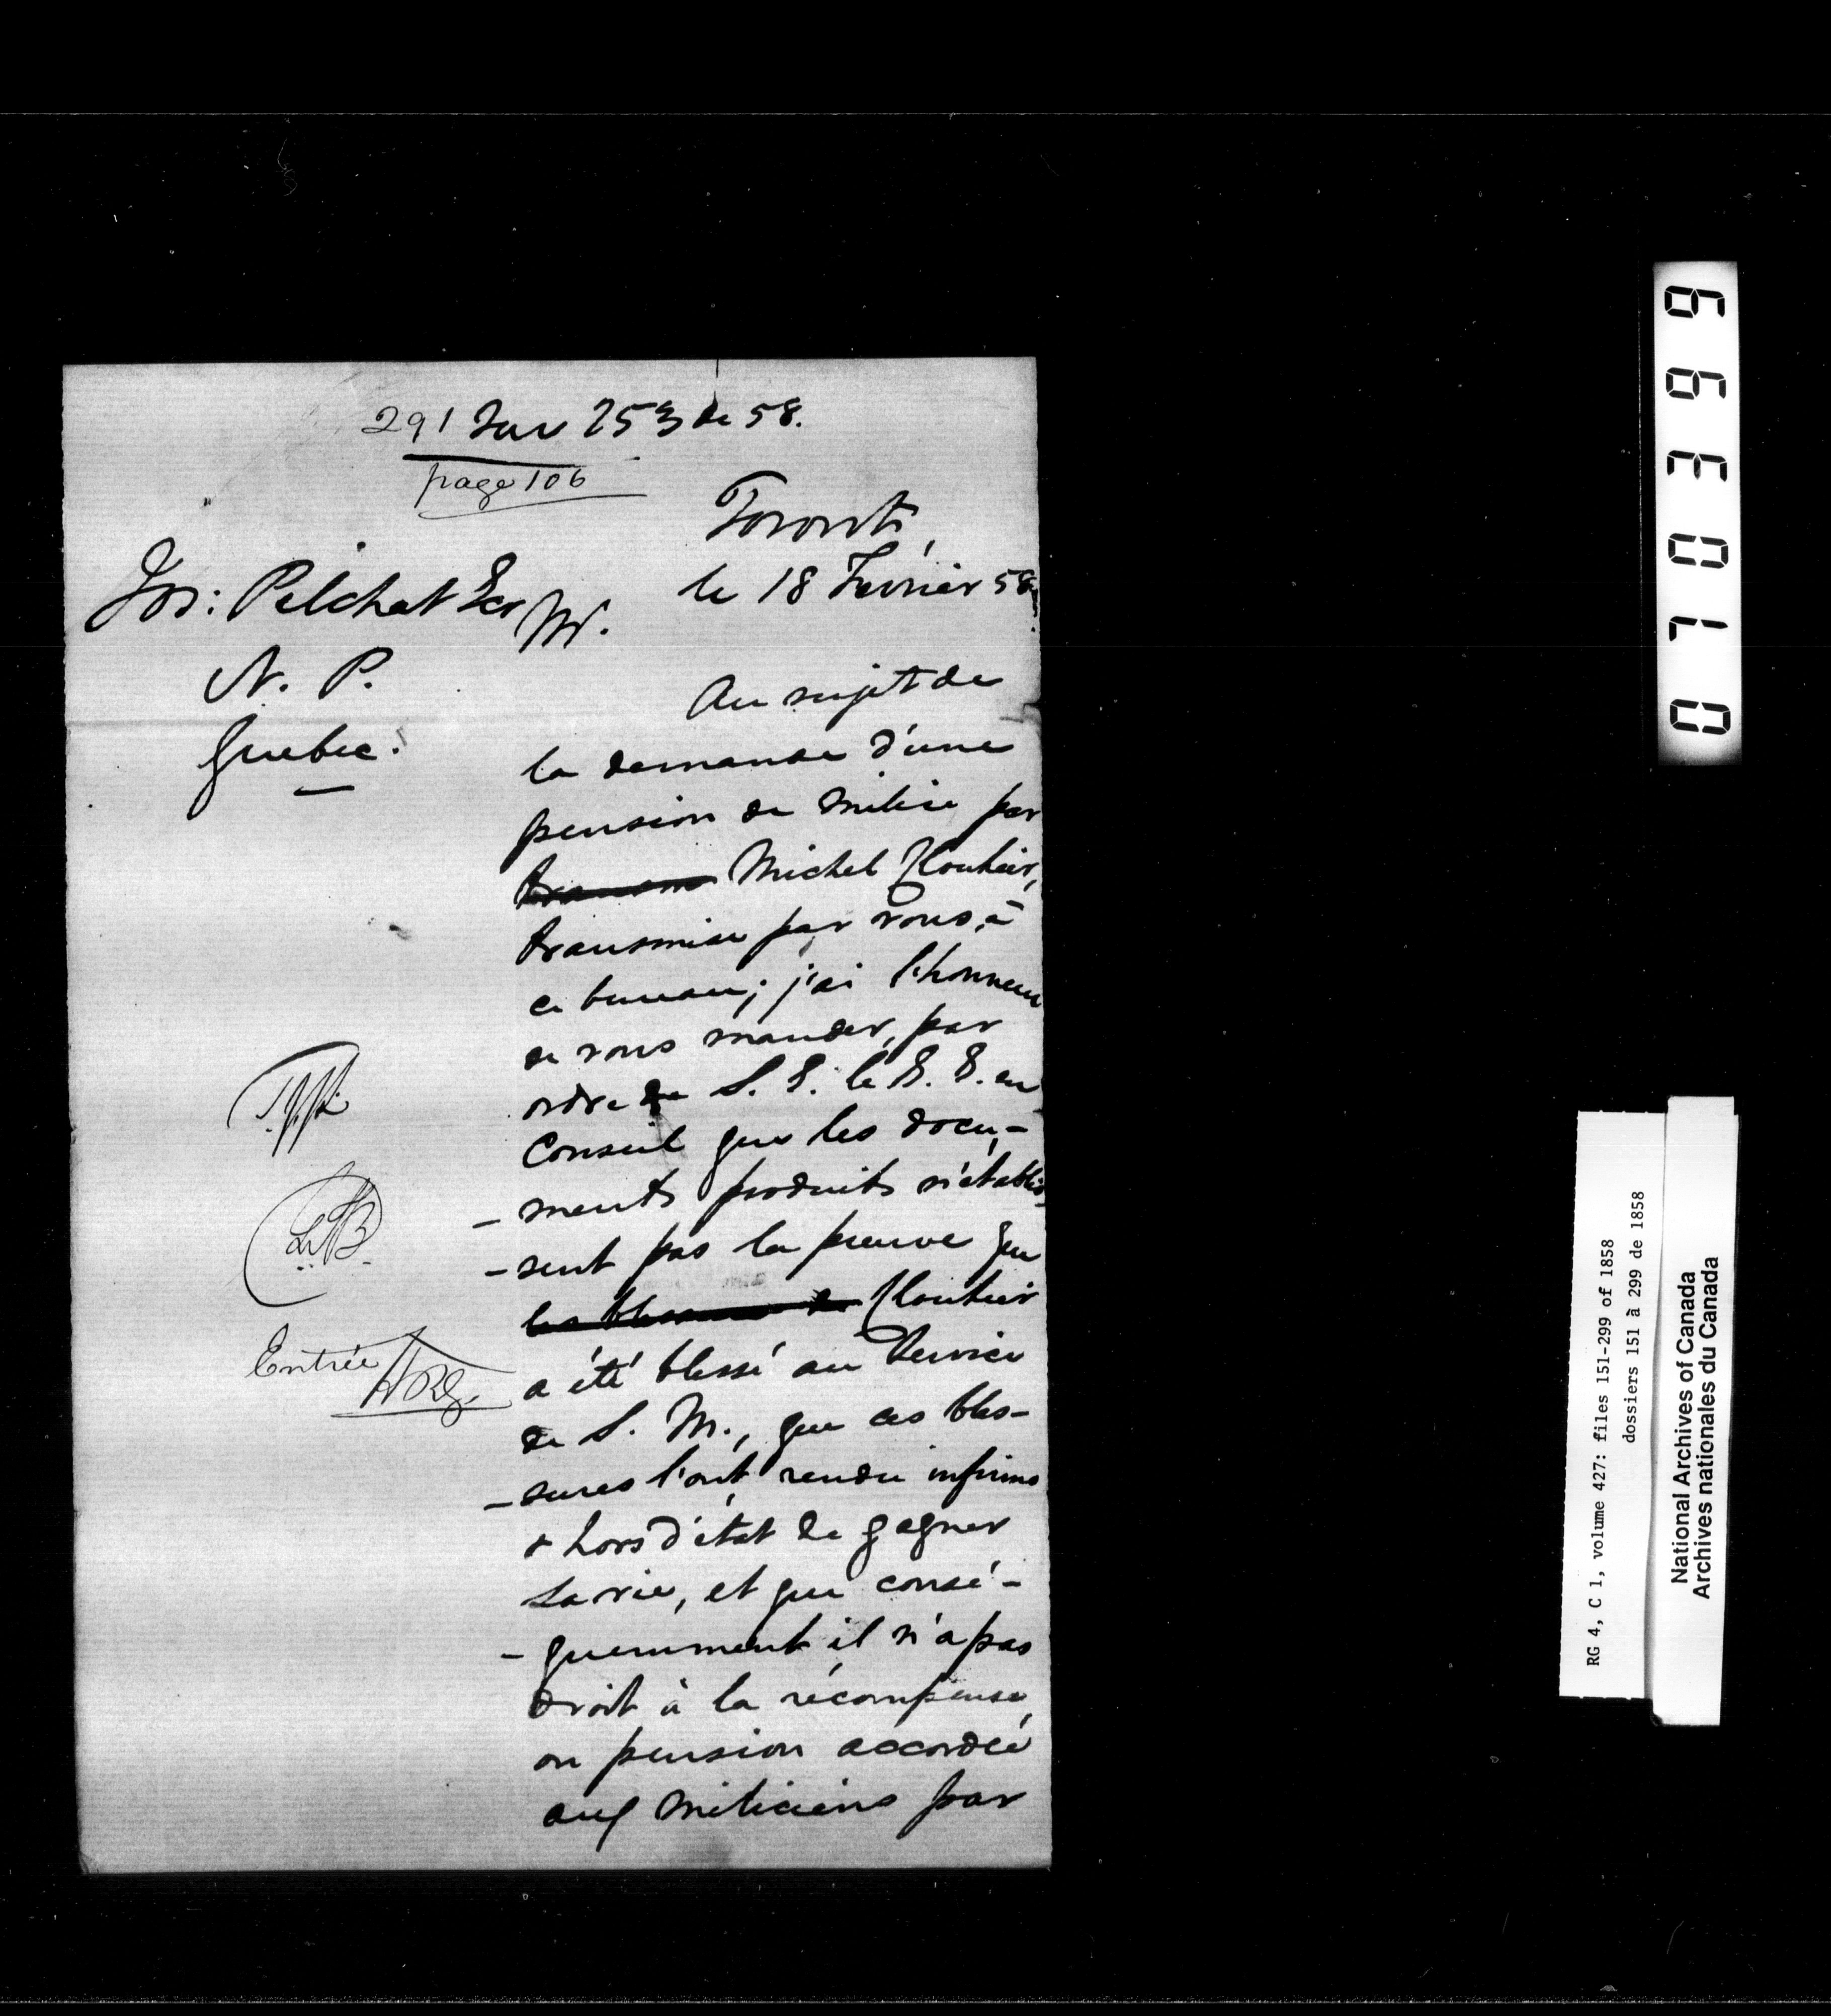 291 Sur 253 de 58.
page 106
Toronto,
le 18 Fevrier 58
Jos: Pelchat Ecr
N. P.
Quebec.
Mr.
Au sujet de
la demande d'une
pension de Milice par
Michel Cloutier,
transmise par vous, à
ce bureau; j'ai l'honneur
de vous mander, par
ordre de S. E. le G. G. en
Conseil que les docu-
-ments produits n'établis-
-sent pas la preuve que
les blessures de Cloutier
a été blessé au Service
de S. M., que ces bles-
-sures l'ont rendu infirme
& hors d'état de gagner
sa vie, et que consé-
-quemment il n'a pas
droit à la récompense
ou pension accordée
aux Miliciens par
Entrée
0710366
RG 4, C 1, volume 427: files 151-299 of 1858
dossiers 151 à 299 de 1858
National Archives of Canada
Archives nationales du Canada